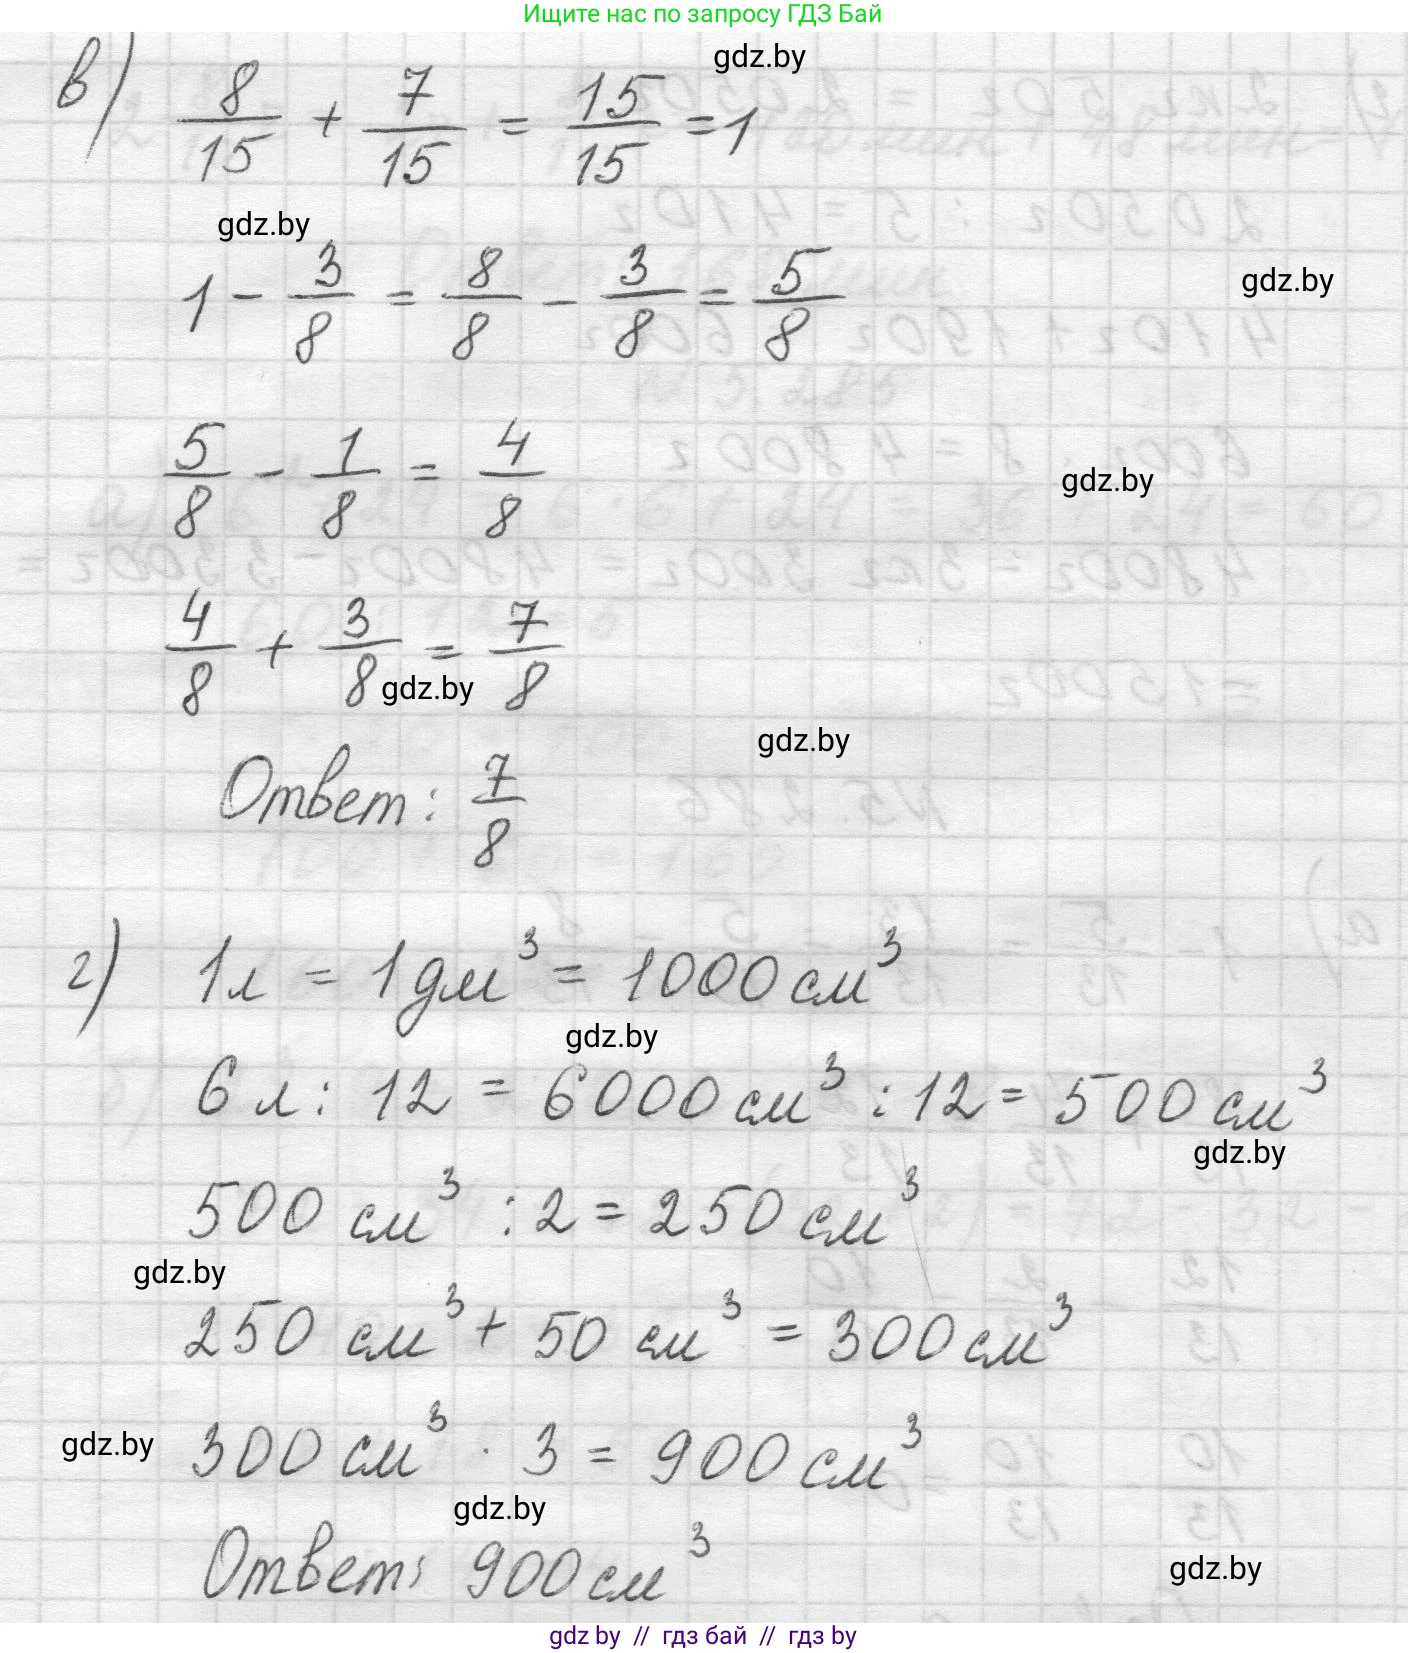 Ищите нас по запросу ГДЗ Бай
gdz.by
в) 8/15 + 7/15 = 15/15 = 1
gdz.by
1 - 3/8 = 8/8 - 3/8 = 5/8
gdz.by
5/8 - 1/8 = 4/8
gdz.by
4/8 + 3/8 = 7/8
gdz.by
gdz.by
Ответ: 7/8
г) 1 л = 1 дм³ = 1000 см³
gdz.by
6 л : 12 = 6000 см³ : 12 = 500 см³
gdz.by
500 см³ : 2 = 250 см³
gdz.by
250 см³ + 50 см³ = 300 см³
gdz.by
300 см³ · 3 = 900 см³
gdz.by
Ответ: 900 см³
gdz.by
gdz by // гдз бай // гдз by